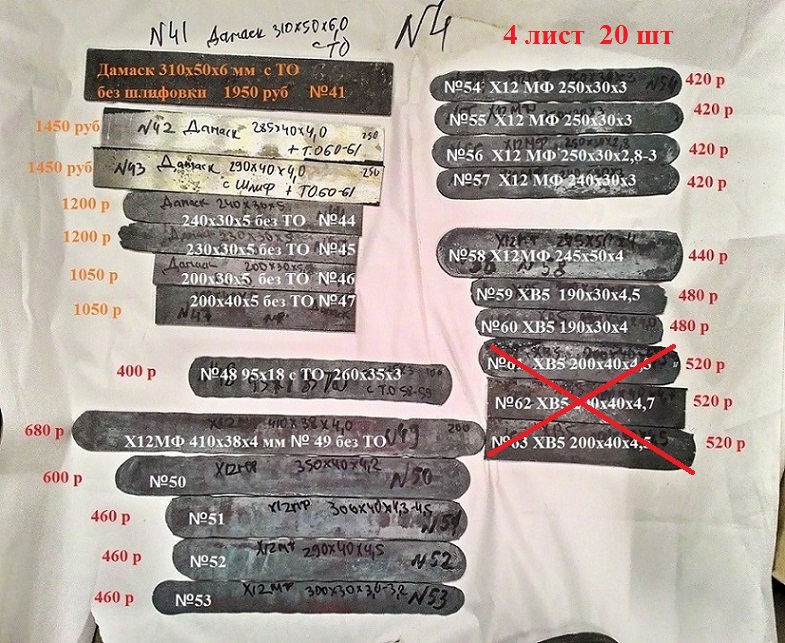 N41 Дамаск 310х50х6,0
с ТО
N4
4 лист 20 шт
Дамаск 310х50х6 мм с ТО
без шлифовки 1950 руб №41
1450 руб
N42 Дамаск 285х40х4,0 250
+ Т.О 60-61
1450 руб
N43 Дамаск 290х40х4,0
с шлиф + ТО 60-61 250
1200 р
Дамаск 240х30х5
240х30х5 без ТО №44
1200 р
230х30х5 без ТО №45
1050 р
Дамаск 200х30х5
200х30х5 без ТО №46
1050 р
200х40х5 без ТО №47
N47
400 р
№48 95х18 с ТО 260х35х3
с Т.О 58-59
680 р
Х12МФ 410х38х4,0 N49 200
Х12МФ 410х38х4 мм № 49 без ТО
600 р
№50 Х12МФ 350х40х4,2 N50
460 р
№51 Х12МФ 300х40х4,3-4,5 N51
460 р
№52 Х12МФ 290х40х4,5 N52
460 р
№53 Х12МФ 300х30х3,0-3,2 N53
№54 Х12 МФ 250х30х3 N54
420 р
№55 Х12 МФ 250х30х3
420 р
№56 Х12 МФ 250х30х2,8-3
420 р
№57 Х12 МФ 240х30х3
420 р
№58 Х12МФ 245х50х4
440 р
№59 ХВ5 190х30х4,5
480 р
№60 ХВ5 190х30х4
480 р
№61 ХВ5 200х40х4,5
520 р
№62 ХВ5 200х40х4,7
520 р
№63 ХВ5 200х40х4,5
520 р